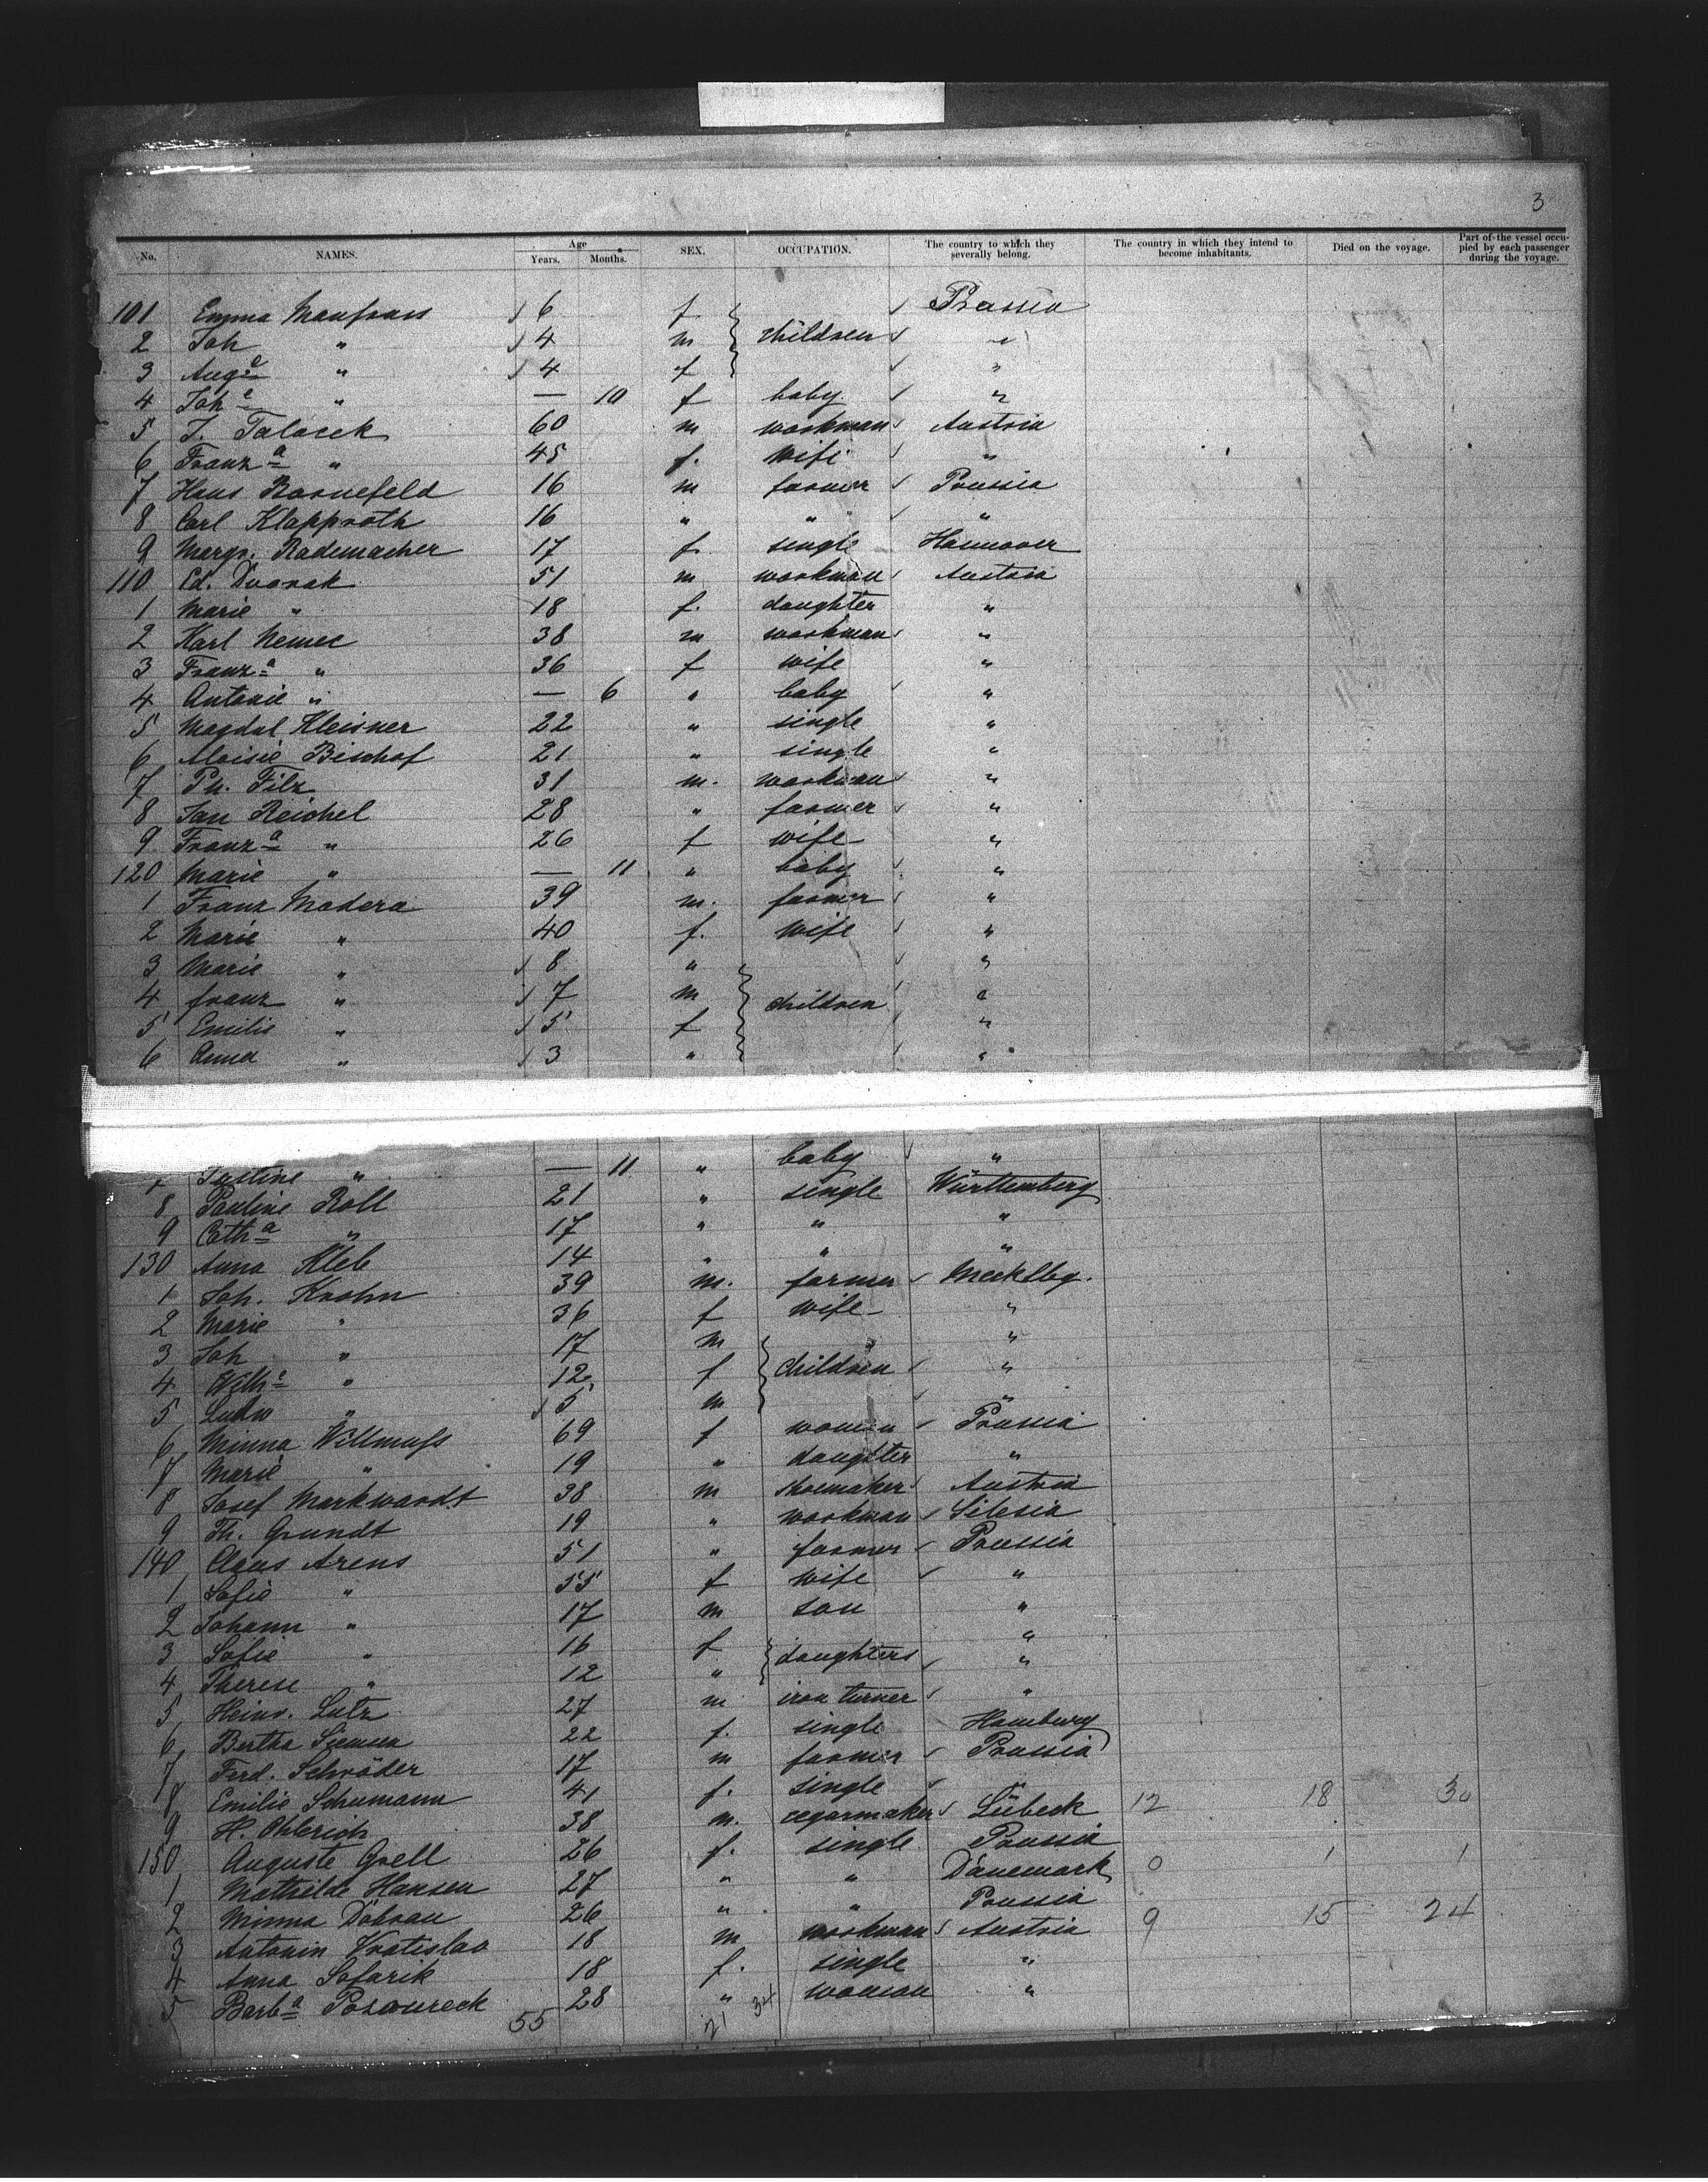 3
No. NAMES. Age Years. Months. SEX. OCCUPATION. The country to which they severally belong. The country in which they intend to become inhabitants. Died on the voyage. Part of the vessel occupied by each passenger during the voyage.
101 Emma 6 f Prussia
2 Joh " 4 m children "
3 Augᵉ " 4 f "
4 Johᵉ " — 10 f baby "
5 J. Talacek 60 m workman Austria
6 Franzᵃ " 45 f. wife "
7 Hans Bornefeld 16 m farmer Prussia
8 Carl Klapproth 16 " " "
9 Margr. Rademacher 17 f. single Hannover
110 Ed. Dvorak 51 m workman Austria
1 Marie " 18 f. daughter "
2 Karl Nemec 38 m workman "
3 Franzᵃ " 36 f wife "
4 Antonie " — 6 " baby "
5 Magdal. Kleisner 22 " single "
6 Aloisie Bischof 21 " single "
7 Ph. Filz 31 m. workman "
8 Jan Reichel 28 " farmer "
9 Franzᵃ " 26 f wife "
120 Marie " — 11 " baby "
1 Franz Madera 39 m. farmer "
2 Marie " 40 f. wife "
3 Marie " 8 " "
4 franz " 7 m children "
5 Emilie " 5 f "
6 Anna " 3 " "
7 Justine " — 11 " baby "
8 Pauline Roll 21 " single Württemberg
9 Cathᵃ " 17 " " "
130 Anna Kleb 14 " " "
1 Joh. Krohn 39 m. farmer Mecklbg.
2 Marie " 36 f wife "
3 Joh " 17 m "
4 Wilhᵉ " 12 f children "
5 Ludw " 5 m "
6 Minna Willmuss 69 f woman Prussia
7 Marie " 19 " daughter "
8 Josef Markwardt 38 m shoemaker Austria
9 Th. Grundt 19 " workman Silesia
140 Claus Arens 51 " farmer Prussia
1 Sofie " 55 f wife "
2 Johann " 17 m son "
3 Sofie " 16 f daughters "
4 Therese " 12 " "
5 Heinr. Lutz 27 m iron turner "
6 Bertha Siemen 22 f. single Hamburg
7 Ferd. Schröder 17 m farmer Prussia
8 Emilie Schumann 41 f. single "
9 H. Ohlerich 38 m. cegarmaker Lübeck 12 18 30
150 Auguste Grell 26 f. single Prussia
1 Mathilde Hansen 27 " " Dänemark 0 1 1
2 Minna 26 " " Prussia
3 Antonin Vratislav 18 m workman Austria 9 15 24
4 Anna Safarik 18 f. single "
5 Barbᵃ 28 " woman "
55 21 34